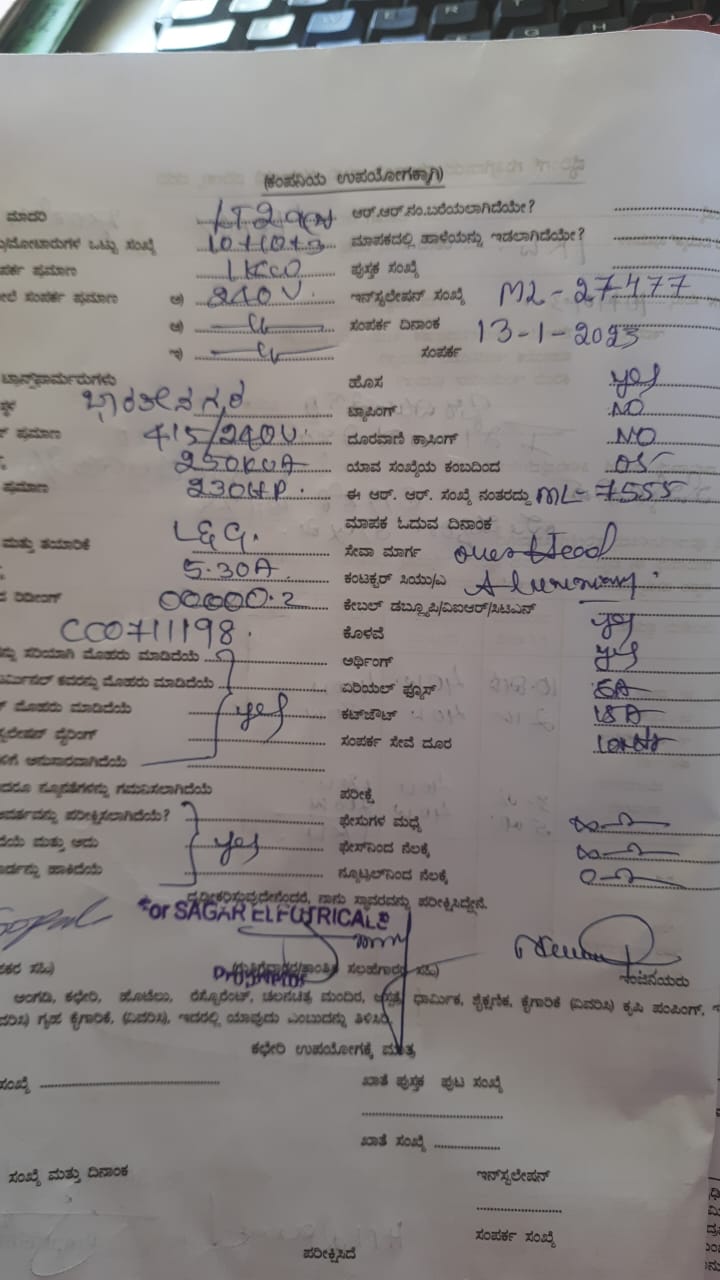 (ಕಂಪನಿಯ ಉಪಯೋಗಕ್ಕಾಗಿ)
ಮಾದರಿ ಆರ್.ಆರ್.ನಂ.ಬರೆಯಲಾಗಿದೆಯೇ?
ಮೋಟಾರುಗಳ ಒಟ್ಟು ಸಂಖ್ಯೆ ಮಾಪಕದಲ್ಲಿ ಹಾಳೆಯನ್ನು ಇಡಲಾಗಿದೆಯೇ?
ಪ್ರಮಾಣ ಪುಸ್ತಕ ಸಂಖ್ಯೆ
ಸಂಪರ್ಕ ಪ್ರಮಾಣ ಅ) 240V. ಇನ್‌ಸ್ಟಲೇಷನ್ ಸಂಖ್ಯೆ ML-27477
ಆ) ಸಂಪರ್ಕ ದಿನಾಂಕ 13-1-2023
ಇ) ಸಂಪರ್ಕ
ಟ್ರಾನ್ಸ್‌ಫಾರ್ಮರುಗಳು ಹೊಸ yes
ಭಾರತೀನಗರ ಟ್ಯಾಪಿಂಗ್ NO
ಪ್ರಮಾಣ 415/240V. ದೂರವಾಣಿ ಕ್ರಾಸಿಂಗ್ NO
250KVA ಯಾವ ಸಂಖ್ಯೆಯ ಕಂಬದಿಂದ 05
ಪ್ರಮಾಣ 230HP. ಈ ಆರ್. ಆರ್. ಸಂಖ್ಯೆ ನಂತರದ್ದು ML-7555
ಮಾಪಕ ಓದುವ ದಿನಾಂಕ
ಮತ್ತು ತಯಾರಿಕೆ L&G. ಸೇವಾ ಮಾರ್ಗ over Head
5-30A. ಕಂಟಕ್ಟರ್ ಸಿಯು/ಎ
ರಿಡಿಂಗ್ 00000.2 ಕೇಬಲ್ ಡಬ್ಲ್ಯೂಪಿ/ವಿಐಆರ್/ಸಿಟಿಎಸ್ yes
CC0711198. ಕೊಳವೆ
ಸರಿಯಾಗಿ ಮೊಹರು ಮಾಡಿದೆಯೆ ಅರ್ಥಿಂಗ್ yes
ಕವರನ್ನು ಮೊಹರು ಮಾಡಿದೆಯೆ ಏರಿಯಲ್ ಫ್ಯೂಸ್ 5A
ಮೊಹರು ಮಾಡಿದೆಯೆ yes ಕಟ್‌ಔಟ್ 15A
ವೈರಿಂಗ್ ಸಂಪರ್ಕ ಸೇವೆ ದೂರ
ಅನುಸಾರವಾಗಿದೆಯೆ
ನ್ಯೂನತೆಗಳನ್ನು ಗಮನಿಸಲಾಗಿದೆಯೆ ಪರೀಕ್ಷೆ
ಪರೀಕ್ಷಿಸಲಾಗಿದೆಯೆ? ಫೇಸುಗಳ ಮಧ್ಯೆ
ಮತ್ತು ಅದು yes ಫೇಸ್‌ನಿಂದ ನೆಲಕ್ಕೆ
ಹಾಕಿದೆಯೆ ನ್ಯೂಟ್ರಲ್‌ನಿಂದ ನೆಲಕ್ಕೆ
ದೃಢೀಕರಿಸುವುದೇನೆಂದರೆ, ನಾನು ಸ್ಥಾವರವನ್ನು ಪರೀಕ್ಷಿಸಿದ್ದೇನೆ.
For SAGAR ELECTRICALS
Proprietor
ಸಹಿ) ಸಲಹೆಗಾರರ ಸಹಿ) ಇಂಜಿನಿಯರು
ಅಂಗಡಿ, ಕಛೇರಿ, ಹೋಟೆಲು, ರೆಸ್ಟೊರೆಂಟ್, ಚಲನಚಿತ್ರ ಮಂದಿರ, ಆಸ್ಪತ್ರೆ, ಧಾರ್ಮಿಕ, ಶೈಕ್ಷಣಿಕ, ಕೈಗಾರಿಕೆ (ವಿವರಿಸಿ) ಕೃಷಿ ಪಂಪಿಂಗ್,
ಗೃಹ ಕೈಗಾರಿಕೆ, (ವಿವರಿಸಿ), ಇದರಲ್ಲಿ ಯಾವುದು ಎಂಬುದನ್ನು ತಿಳಿಸಿರಿ.
ಕಛೇರಿ ಉಪಯೋಗಕ್ಕೆ ಮಾತ್ರ
ಸಂಖ್ಯೆ ಖಾತೆ ಪುಸ್ತಕ ಪುಟ ಸಂಖ್ಯೆ
ಖಾತೆ ಸಂಖ್ಯೆ
ಸಂಖ್ಯೆ ಮತ್ತು ದಿನಾಂಕ ಇನ್‌ಸ್ಟಲೇಷನ್
ಸಂಪರ್ಕ ಸಂಖ್ಯೆ
ಪರೀಕ್ಷಿಸಿದೆ